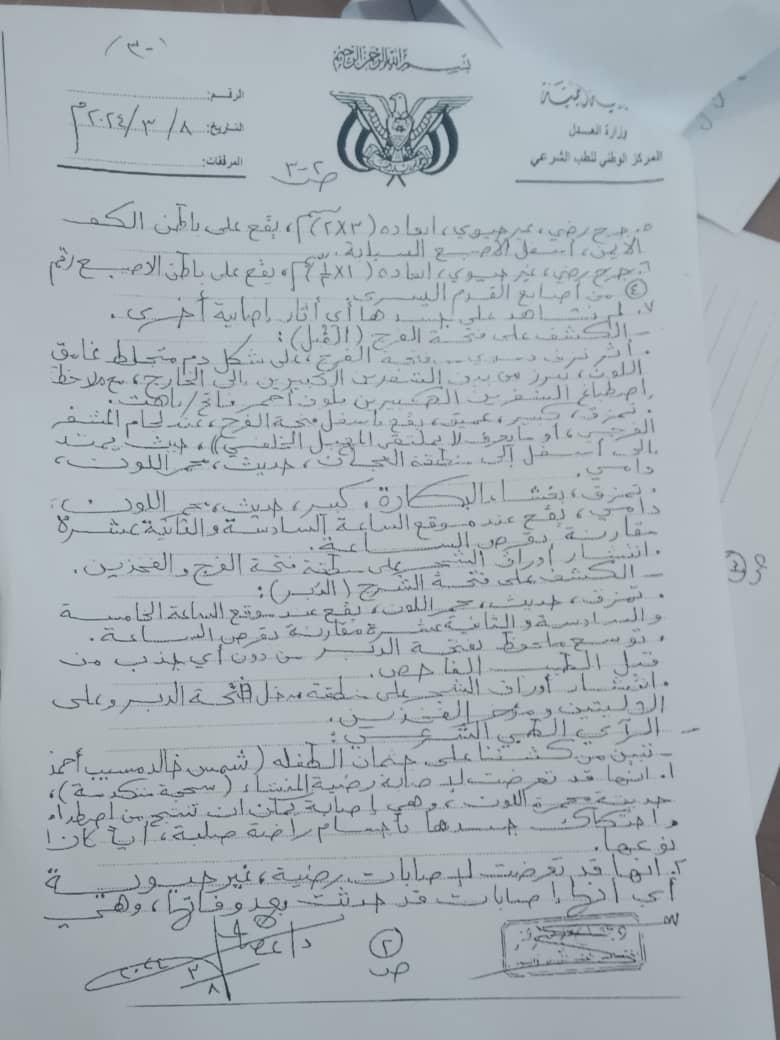 (٣-١)
بسم الله الرحمن الرحيم
الرقم:
وزارة العدل
التاريخ: ٨ / ٣ / ٢٠٢٤م
المركز الوطني للطب الشرعي
المرفقات:
ص ٢-٣
٥. جرح رضي، غير حيوي، ابعاده (٣×٢سم)، يقع على باطن الكف
الايمن، اسفل الاصبع السبابة.
٦. جرح رضي، غير حيوي، ابعاده، يقع على باطن الاصبع رقم
④ من أصابع القدم اليسرى.
٧. لم نشاهد على جسدها أي أثار إصابية أخرى.
- الكشف على فتحة الفرج (القُبل):
. أثر نزف دموي فتحة الفرج، على شكل دم متجلط غامق
اللون، يبرز من بين الشفرين الكبيرين إلى الخارج، مع ملاحظة
إصطباغ الشفرين الصغيرين بلون أحمر فاتح/باهت.
. تمزق، كبير، عميق، يقع بأسفل فتحة الفرج، عند لجام المشفر
الفرجي، او ما يعرف لا بملتقى المهبل الخلفي)، حيث يمتد
إلى أسفل إلى منطقة العجان، حديث، محمر اللون،
دامي.
. تمزق، بغشاء البكارة، كبير، حديث، محمر اللون،
دامي، يقع عند موقع الساعة السادسة والثانية عشرة
مقارنة بقرص الساعة.
. انتشار أوراق الشجر على منطقة فتحة الفرج والفخذين.
- الكشف على فتحة الشرج (الدبر):
. تمزق، حديث، محمر اللون، يقع عند موقع الساعة الخامسة
والسادسة والثانية عشرة مقارنة بقرص الساعة.
. توسع ملحوظ لفتحة الدبر من دون أي جذب من
قبل الطبيب الفاحص.
. انتشار أوراق الشجر على منطقة مدخل فتحة الدبر وعلى
الإليتين ومؤخر الفخذين.
- الرأي الطبي الشرعي:
- تبين من كشفنا على جثمان الطفله (شمس خالد مسيب أحمد
١. انها قد تعرضت لإصابة رضية المنشاء (سحجة متكدمة)،
حديثة محمرة اللون، وهي إصابة يمكن ان تنتج من إصطدام
واحتكاك جسدها بأجسام راضة صلبة، أياً كان
نوعها.
٢. انها قد تعرضت لإصابات رضية، غير حيوية
أي انها إصابات قد حدثت بعد وفاتها، وهي
②
ص
٨ / ٣ / ٢٠٢٤